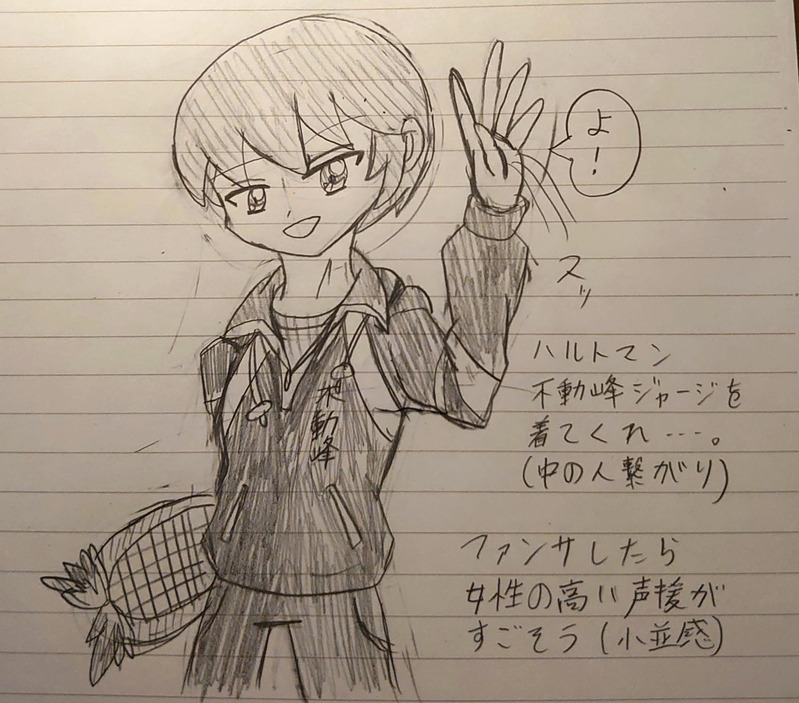 よ!
スッ
不動峰
ハルトマン
不動峰ジャージを
着てくれ…。
(中の人繋がり)
ファンサしたら
女性の高い声援が
すごそう(小並感)